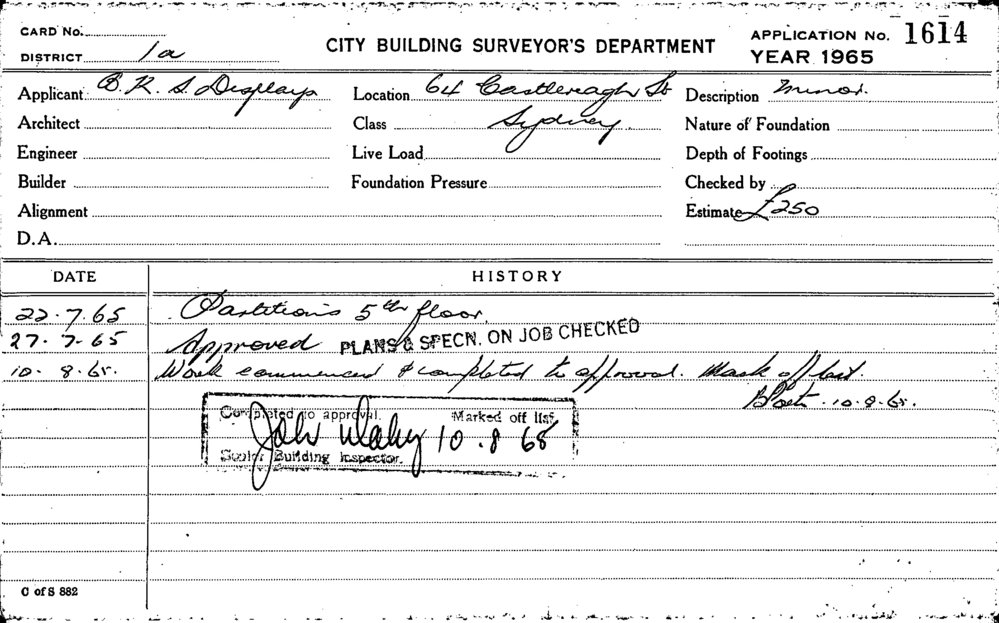 CARD No.
DISTRICT 1a
CITY BUILDING SURVEYOR'S DEPARTMENT
APPLICATION No. 1614
YEAR 1965
Applicant B. R. S. Displays
Location 64 Castlereagh St
Description Minor.
Architect
Class Sydney
Nature of Foundation
Engineer
Live Load
Depth of Footings
Builder
Foundation Pressure
Checked by
Alignment
Estimate £250
D.A.
DATE HISTORY
22.7.65 Partitions 5th floor.
27.7.65 Approved PLANS & SPECN. ON JOB CHECKED
10.8.65. Work commenced & completed to approval. Mark off list.
10.8.65.
Completed to approval. Marked off list.
John 10.8 65
Senior Building Inspector.
C of S 882